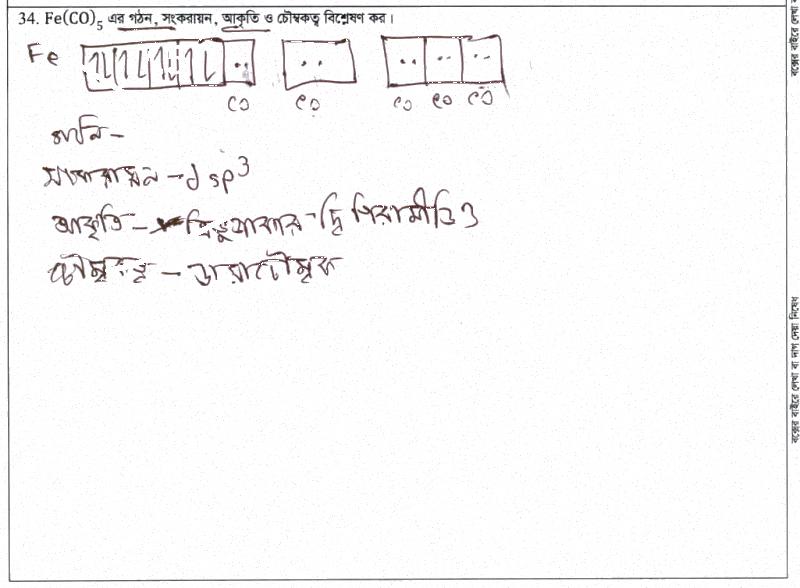 34. Fe(CO)₅ এর গঠন, সংকরায়ন, আকৃতি ও চৌম্বকত্ব বিশ্লেষণ কর।
Fe 1L 1L 1L 1L .. .. .. .. ..
co co co co co
সংকরায়ন - dsp³
আকৃতি - ত্রিভুজাকার-দ্বি পিরামীডিও
চৌম্বকত্ব - ডায়াচৌম্বক
বক্সের বাইরে লেখা বা দাগ দেয়া নিষেধ
বক্সের বাইরে লেখা